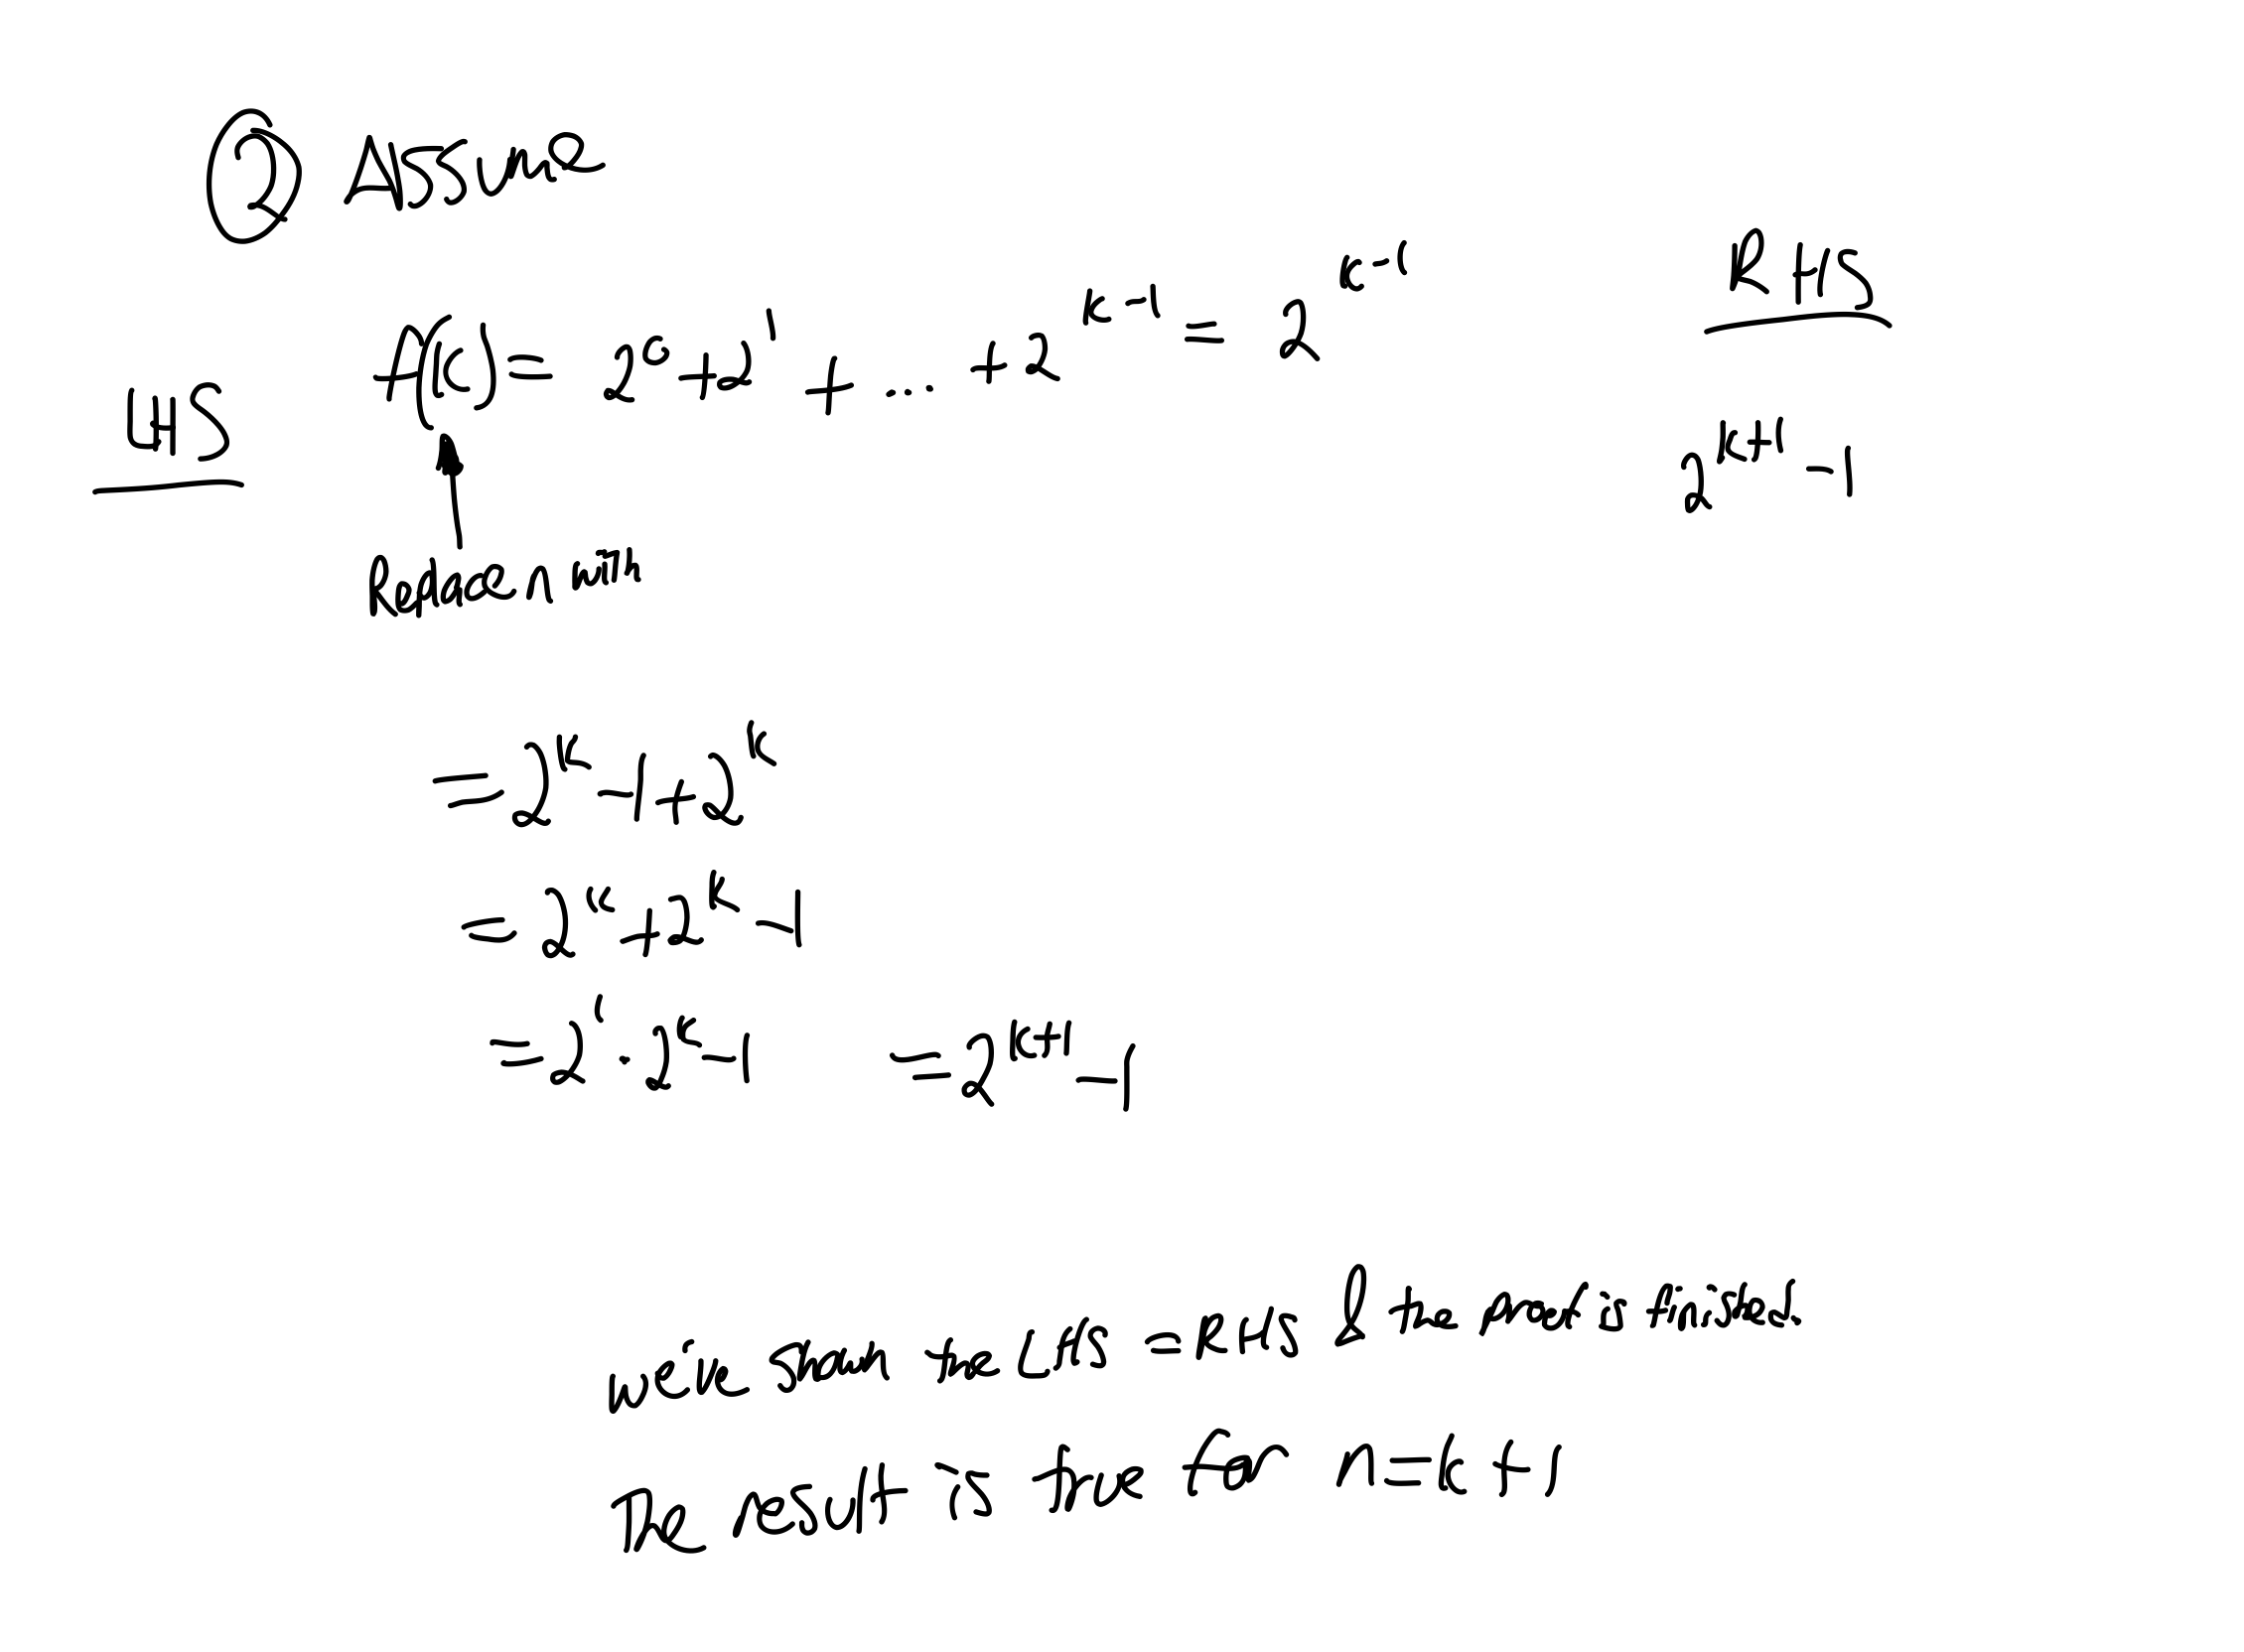 ② Assume
RHS
f(k) = 2⁰ + 2¹ + ... + 2^(k-1) = 2^(k-1)
LHS
2^(k+1) - 1
Replace n with
= 2^k - 1 + 2^k
= 2^k + 2^k - 1
= 2¹ · 2^k - 1 = 2^(k+1) - 1
we've shown the LHS = RHS & the proof is finished.
The result is true for n = k + 1